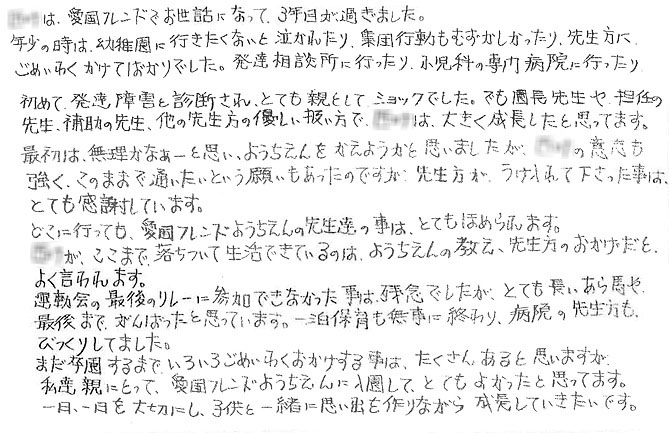 は、愛国フレンドでお世話になって、3年目が過ぎました。
年少の時は、幼稚園に行きたくないと泣かれたり、集団行動もむずかしかったり、先生方に、
ごめいわくかけてばかりでした。発達相談所に行ったり、小児科の専門病院に行ったり
初めて、発達障害と診断され、とても親としてショックでした。でも園長先生や、担任の
先生、補助の先生、他の先生方の優しい扱い方で、は、大きく成長したと思ってます。
最初は、無理かなぁーと思い、ようちえんをかえようかと思いましたが、の意志も
強く、このままで通いたいという願いもあったのですが、先生方が、うけ入れて下さった事は、
とても感謝しています。
どこに行っても、愛国フレンドようちえんの先生達の事は、とてもほめられます。
が、ここまで、落ちついて生活できているのは、ようちえんの教え、先生方のおかげだと、
よく言われます。
運動会の最後のリレーに参加できなかった事は、残念でしたが、とても長いあら馬や、
最後まで、がんばったと思っています。一泊保育も無事に終わり、病院の先生方も、
びっくりしてました。
まだ卒園するまで、いろいろごめいわくおかけする事は、たくさんあると思いますが、
私達親にとって、愛国フレンドようちえんに入園して、とてもよかったと思ってます。
一日、一日を大切にし、子供と一緒に思い出を作りながら成長していきたいです。